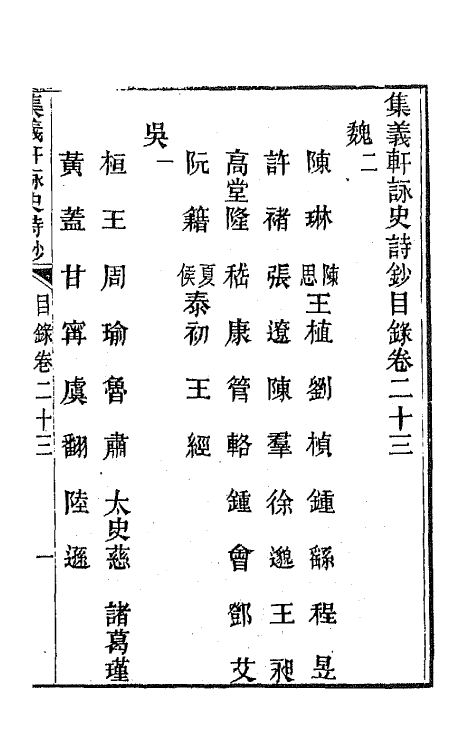 集義軒詠史詩鈔目錄卷二十三
魏二
陳琳 陳思王植 劉楨 鍾繇 程昱
許褚 張遼 陳羣 徐邈 王昶
高堂隆 嵇康 管輅 鍾會 鄧艾
阮籍 夏侯泰初 王經
吳一
桓王 周瑜 魯肅 太史慈 諸葛瑾
黃蓋 甘寗 虞翻 陸遜
集義軒詠史詩鈔 目錄卷二十三 一